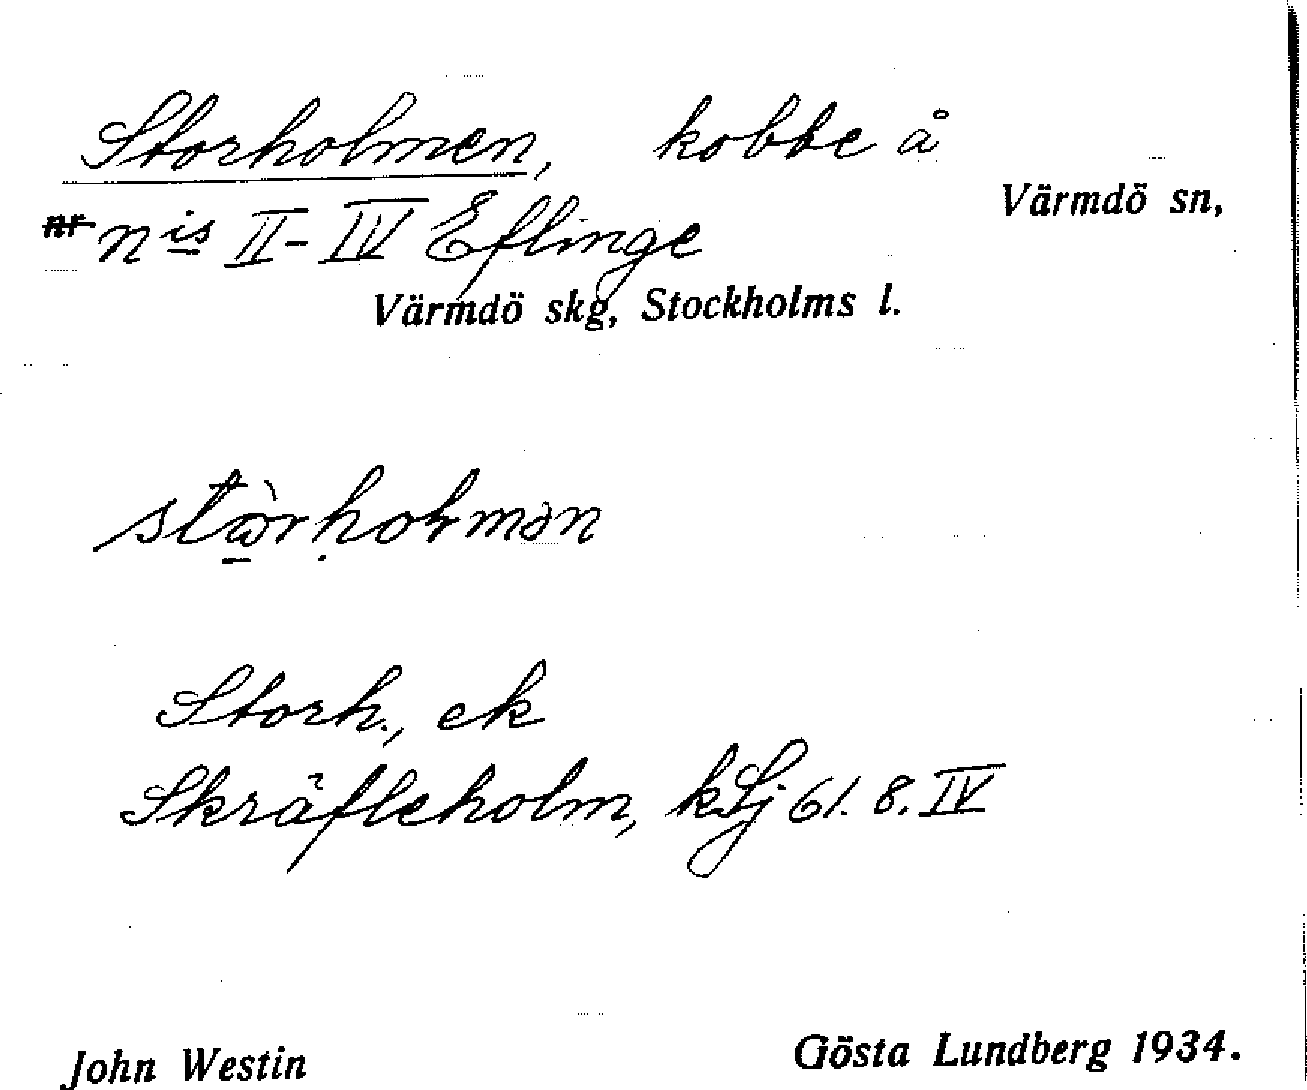 Storholmen, kobbe å
Värmdö sn,
nis II-IV Eflinge
Värmdö skg, Stockholms l.
Storh., ek
Skräfleholm, kLj 61. 8. IV
John Westin
Gösta Lundberg 1934.